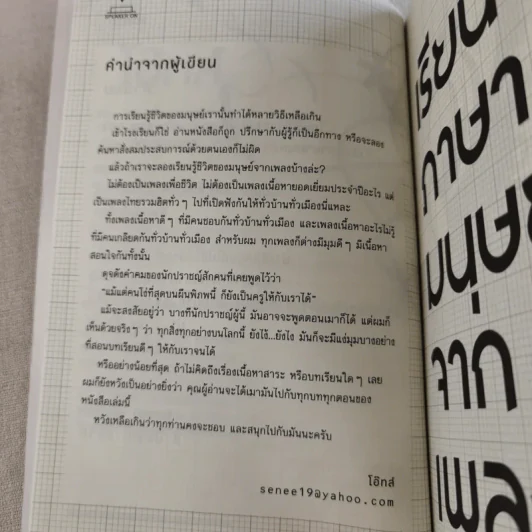 SPEAKER ON
คำนำจากผู้เขียน
การเรียนรู้ชีวิตของมนุษย์เรานั้นทำได้หลายวิธีเหลือเกิน
เข้าโรงเรียนก็ใช่ อ่านหนังสือก็ถูก ปรึกษากับผู้รู้ก็เป็นอีกทาง หรือจะลอง
ค้นหาสั่งสมประสบการณ์ด้วยตนเองก็ไม่ผิด
แล้วถ้าเราจะลองเรียนรู้ชีวิตของมนุษย์จากเพลงบ้างล่ะ?
ไม่ต้องเป็นเพลงเพื่อชีวิต ไม่ต้องเป็นเพลงเนื้อหายอดเยี่ยมประจำปีอะไร แต่
เป็นเพลงไทยรวมฮิตทั่วๆ ไปที่เปิดฟังกันให้ทั่วบ้านทั่วเมืองนี่แหละ
ทั้งเพลงเนื้อหาดีๆ ที่มีคนชอบกันทั่วบ้านทั่วเมือง และเพลงเนื้อหาอะไรไม่รู้
ที่มีคนเกลียดกันทั่วบ้านทั่วเมือง สำหรับผม ทุกเพลงก็ต่างมีมุมดีๆ มีเนื้อหา
สอนใจกันทั้งนั้น
ดุจดังคำคมของนักปราชญ์สักคนที่เคยพูดไว้ว่า
"แม้แต่คนโง่ที่สุดบนผืนพิภพนี้ ก็ยังเป็นครูให้กับเราได้"
แม้จะสงสัยอยู่ว่า บางทีนักปราชญ์ผู้นี้ มันอาจจะพูดตอนเมาก็ได้ แต่ผมก็
เห็นด้วยจริงๆ ว่า ทุกสิ่งทุกอย่างบนโลกนี้ ยังไง้...ยังไง มันก็จะมีแง่มุมบางอย่าง
ที่สอนบทเรียนดีๆ ให้กับเราจนได้
หรืออย่างน้อยที่สุด ถ้าไม่คิดถึงเรื่องเนื้อหาสาระ หรือบทเรียนใดๆ เลย
ผมก็ยังหวังเป็นอย่างยิ่งว่า คุณผู้อ่านจะได้เมามันไปกับทุกบททุกตอนของ
หนังสือเล่มนี้
หวังเหลือเกินว่าทุกท่านคงจะชอบ และสนุกไปกับมันนะครับ
โอ๊ทส์
senee19@yahoo.com
เรียน
ภาษา
มนุษย์
จาก
เพล